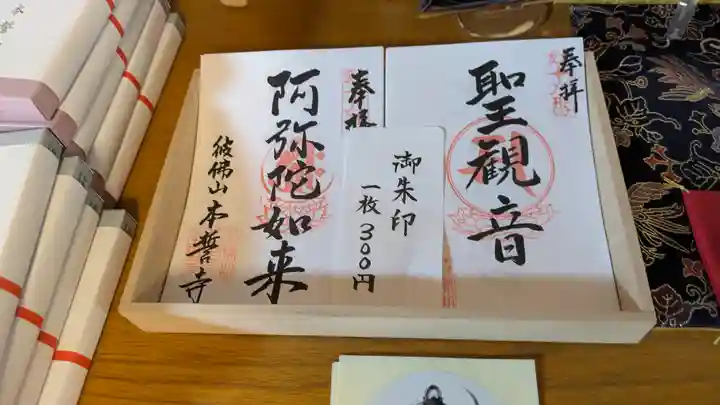 奉拝
聖観音
奉拝
阿弥陀如来
彼佛山本誓寺
御朱印
一枚300円